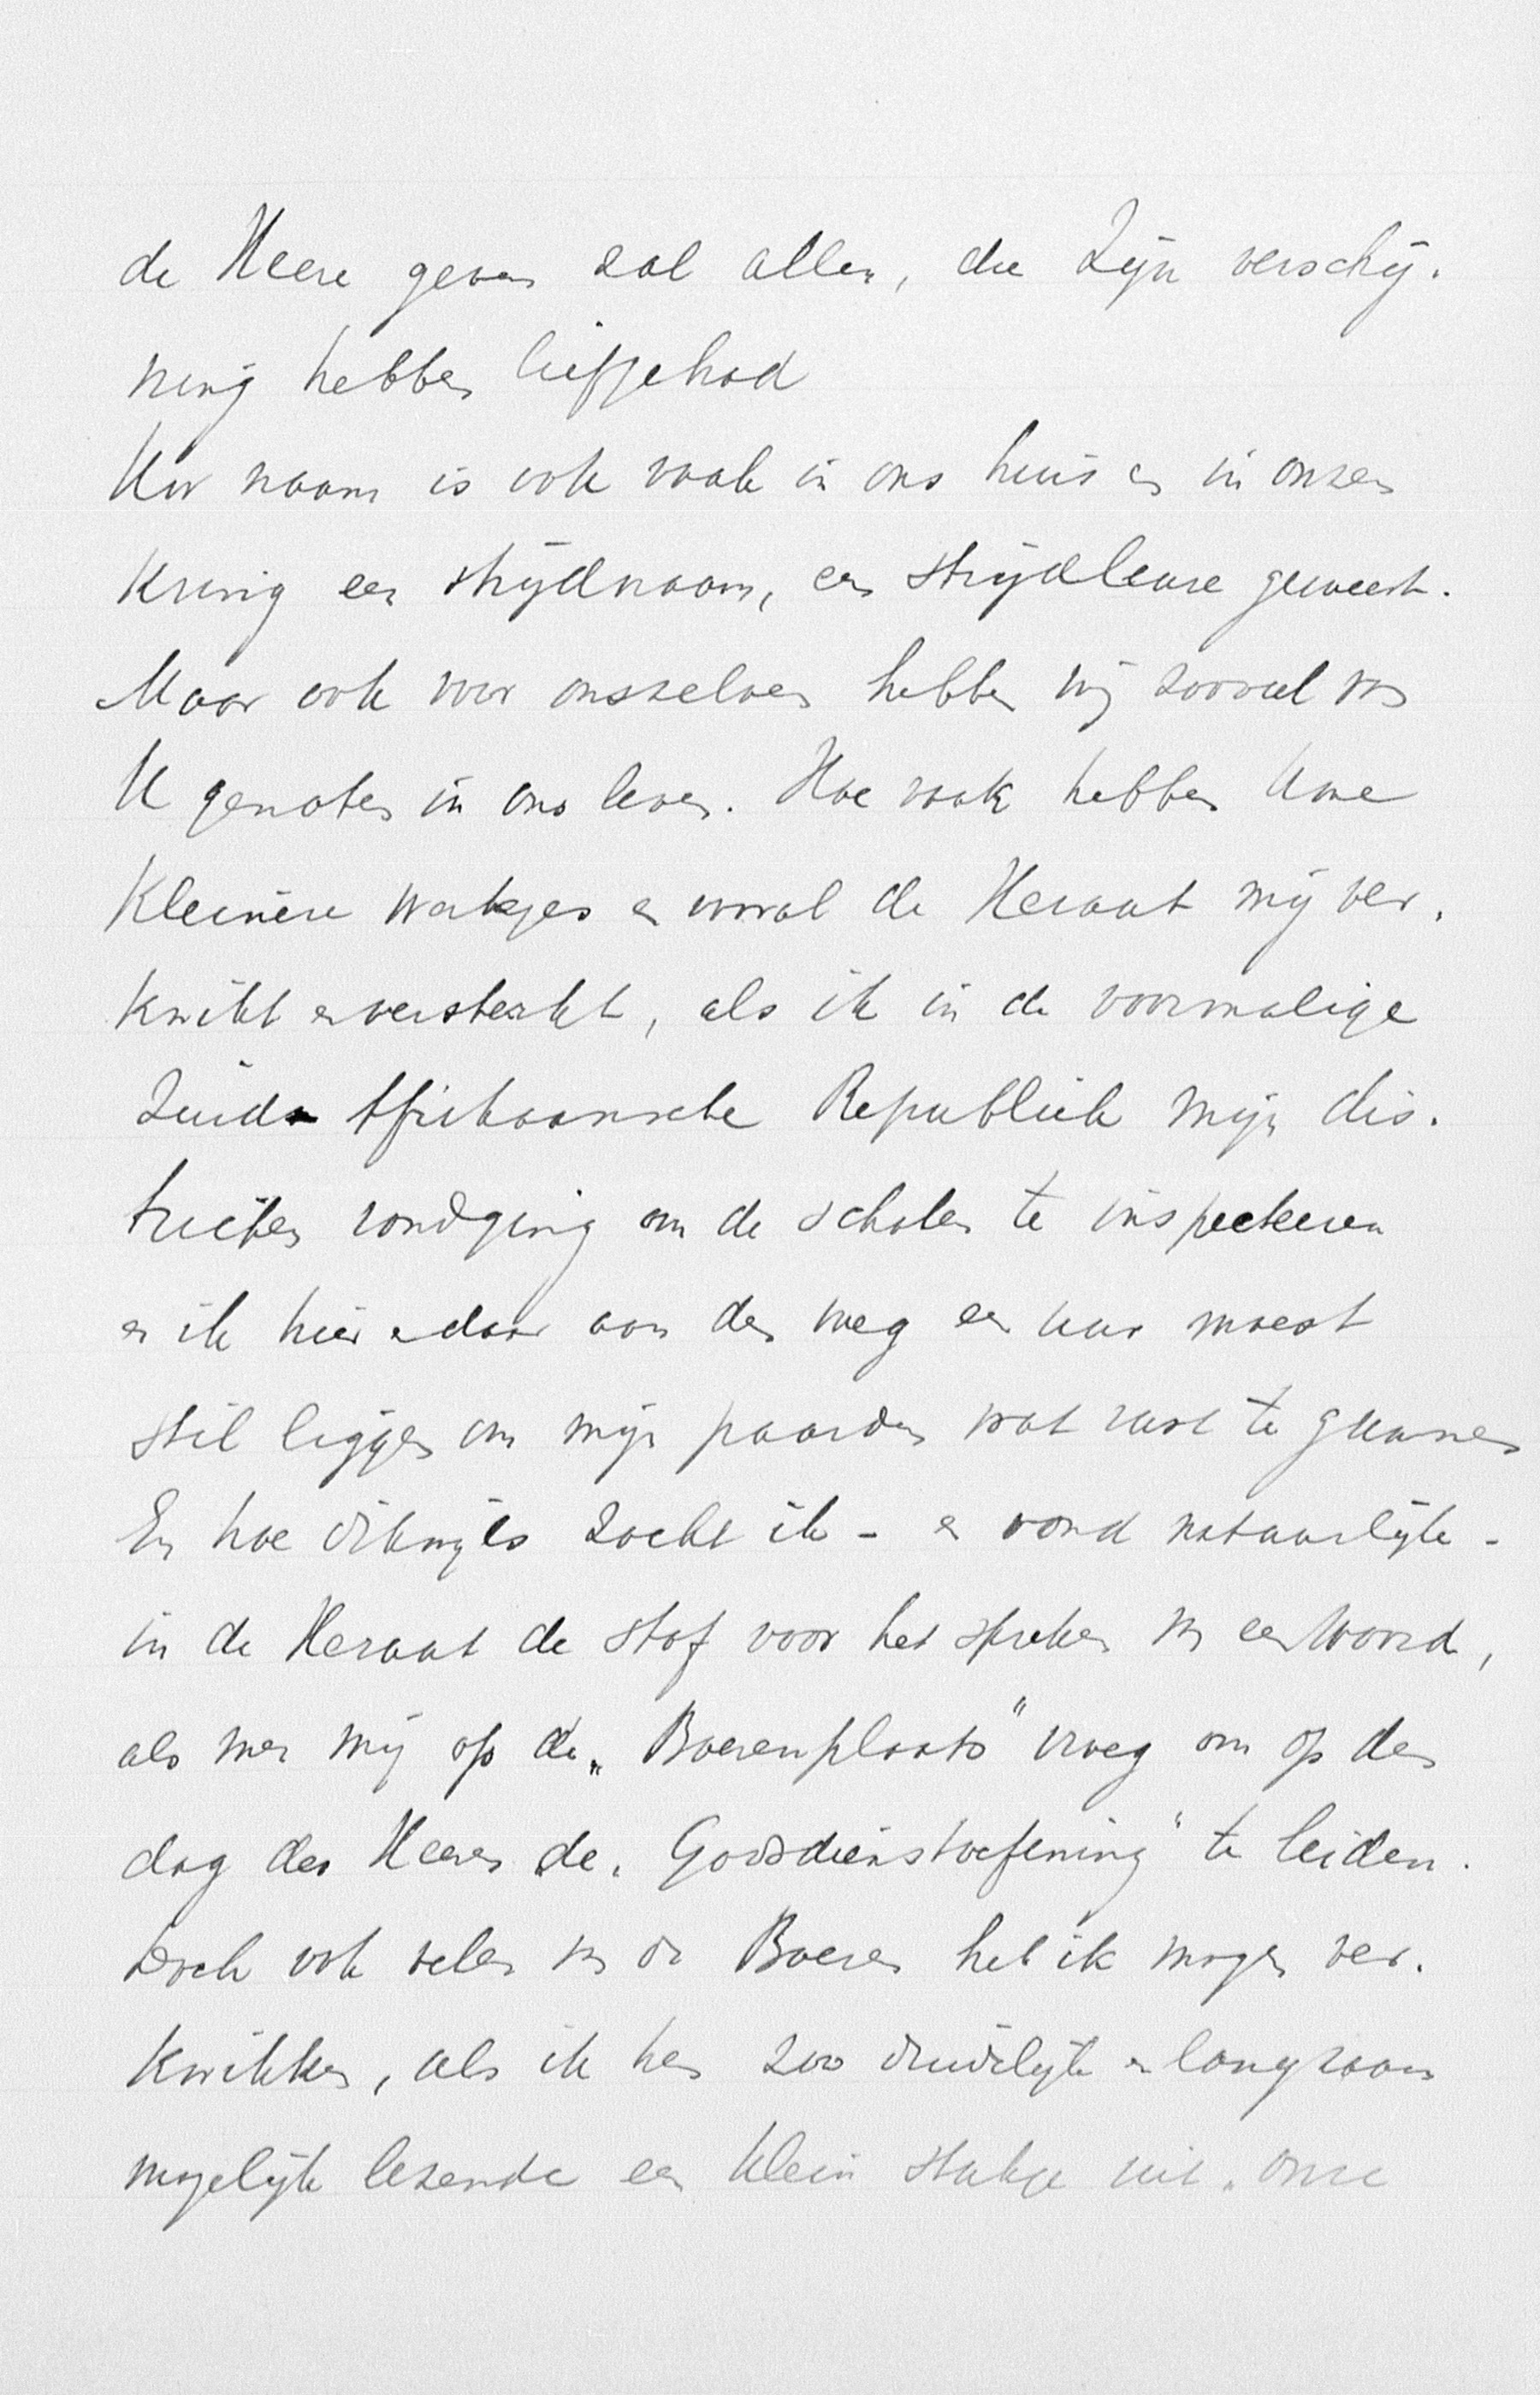 de Heere geven zal allen, die Zijn verschij-
ning hebben liefgehad
Uw naam is ook vaak in ons huis en in onzen
kring een strijdnaam, een strijdleuze geweest.
Maar ook voor onszelven hebben wij zooveel van
U genoten in ons leven. Hoe vaak hebben Uwe
kleinere werkjes en vooral de Heraut mij ver-
kwikt en versterkt, als ik in de voormalige
Zuid-Afrikaansche Republiek mijn dis-
tricten rondging om de scholen te inspecteeren
en ik hier en daar aan den weg een uur moest
stil liggen om mijn paarden wat rust te gunnen
En hoe dikwijls zocht ik - en vond natuurlijk -
in de Heraut de stof voor het spreken van een woord,
als men mij op de „Boerenplaats" vroeg om op den
dag des Heeren de „Godsdienstoefening" te leiden.
Doch ook velen van de Boeren heb ik mogen ver-
kwikken, als ik hen zoo duidelijk en langzaam
mogelijk lezende een klein stukje uit „Onze